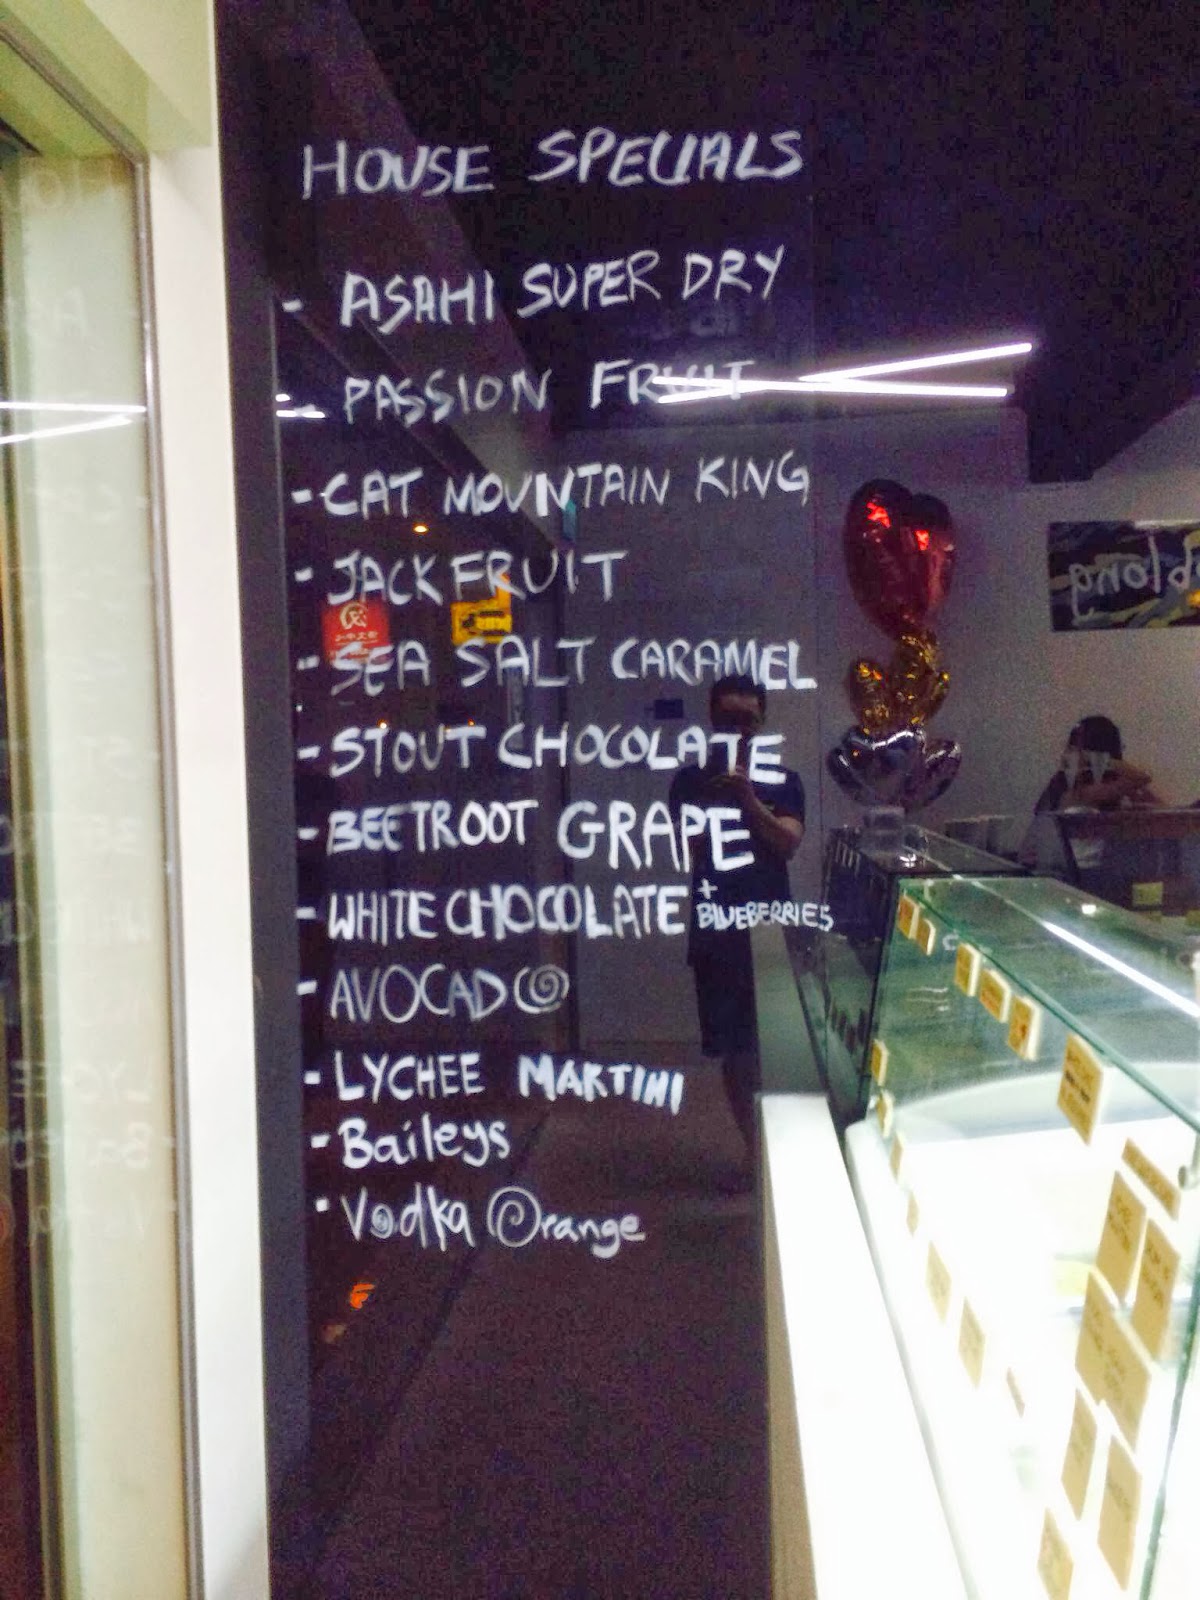 HOUSE SPECIALS
- ASAHI SUPER DRY
PASSION FRUIT
- CAT MOUNTAIN KING
- JACKFRUIT
- SEA SALT CARAMEL
- STOUT CHOCOLATE
- BEETROOT GRAPE
- WHITE CHOCOLATE + BLUEBERRIES
- AVOCADO
- LYCHEE MARTINI
- Baileys
- Vodka Orange